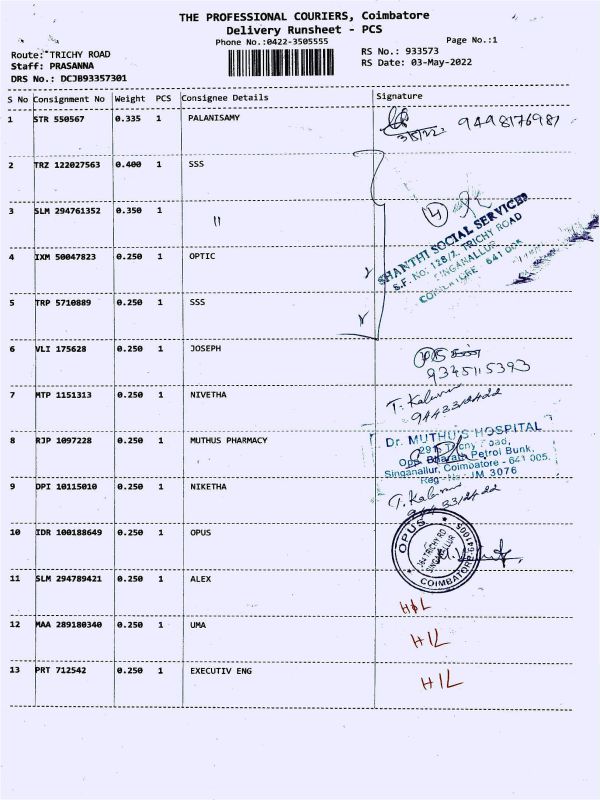 THE PROFESSIONAL COURIERS, Coimbatore
Delivery Runsheet - PCS
Phone No.:0422-3505555 Page No.:1
Route: TRICHY ROAD RS No.: 933573
Staff: PRASANNA RS Date: 03-May-2022
DRS No.: DCJB93357301
S No Consignment No Weight PCS Consignee Details Signature
1 STR 550567 0.335 1 PALANISAMY 3/5/22 9498176981
2 TRZ 122027563 0.400 1 SSS
3 SLM 294761352 0.350 1 11 4
SHANTHI SOCIAL SERVICES
S.F. No: 128/2, TRICHY ROAD
SINGANALLUR
COIMBATORE - 641 005
4 IXM 50047823 0.250 1 OPTIC
5 TRP 5710889 0.250 1 SSS
6 VLI 175628 0.250 1 JOSEPH
9345115393
7 MTP 1151313 0.250 1 NIVETHA
8 RJP 1097228 0.250 1 MUTHUS PHARMACY
Dr. MUTHU'S HOSPITAL
Opp. Bharath Petrol Bunk,
Singanallur, Coimbatore - 641 005.
Reg. No. JM 3076
9 DPI 10115010 0.250 1 NIKETHA
10 IDR 100188649 0.250 1 OPUS
OPUS
TRICHY RD
SINGANALLUR
COIMBATORE-641005
11 SLM 294789421 0.250 1 ALEX HIL
12 MAA 289180340 0.250 1 UMA HIL
13 PRT 712542 0.250 1 EXECUTIV ENG HIL